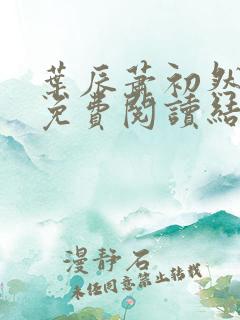 葉辰蕭初然
免費閱讀結
漫靜石
未經同意禁止轉載